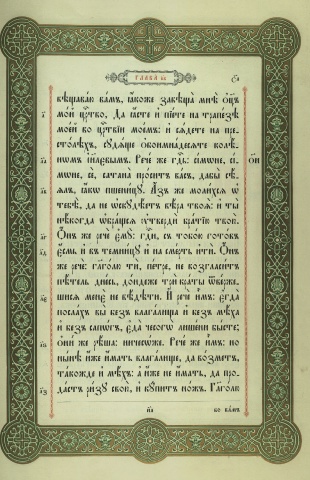 ГЛАВА к҃в
вѣщаваю ва́мъ, ꙗ҆́коже завѣща̀ мнѣ̀ ѻ҆ц҃ъ
мо́й црⷭ҇тво, Да ꙗ҆́сте и҆ пїе́те на трапе́зѣ
мое́й во црⷭ҇твїи мое́мъ: и҆ сѧ́дете на пре-
сто́лѣхъ, сꙋдѧ́ще ѻ҆бѣмана́десѧте колѣ́-
нома і҆и҃левыма. Рече́ же гдⷭ҇ь: сі́мѡне, сі́-
мѡне, сѐ, сатана̀ про́ситъ ва́съ, дабы̀ сѣ́-
ѧлъ, ꙗ҆́кѡ пшени́цꙋ. А҆́зъ же моли́хсѧ ѡ҆
тебѣ̀, да не ѡ҆скꙋдѣ́етъ вѣ́ра твоѧ̀: и҆ ты̀
нѣ́когда ѡ҆бра́щьсѧ ᲂу҆твердѝ бра́тїю твою̀.
Ѻ҆́нъ же речѐ є҆мꙋ̀: гдⷭ҇и, съ тобо́ю гото́въ
є҆́смь и҆ въ темни́цꙋ и҆ на сме́рть и҆тѝ. Ѻ҆́нъ
же речѐ: гл҃го́лю тѝ, пе́тре, не возгласи́тъ
пѣ́тель дне́сь, до́ндеже трѝ кра́ты ѿве́рже-
шисѧ менє̀ не вѣ́дѣти. И҆ речѐ и҆̀мъ: є҆гда̀
посла́хъ вы̀ без̾ влага́лища и҆ без̾ мѣ́ха
и҆ без̾ сапѡ́гъ, є҆да̀ чесогѡ̀ лише́ни бы́сте;
ѻ҆ни́ же рѣ́ша: ничесѡ́же. Рече́ же и҆̀мъ: но
нн҃ѣ и҆́же и҆́мать влага́лище, да во́зметъ,
та́кожде и҆ мѣ́хъ: а҆ и҆́же не и҆́мать, да про-
да́стъ ри́зꙋ свою̀, и҆ кꙋ́питъ но́жъ. Гл҃го́лю
бо ва́мъ